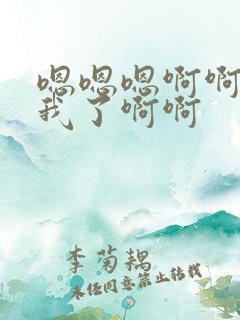 嗯嗯嗯啊啊
我了啊啊
李菊耦
未经同意禁止转载